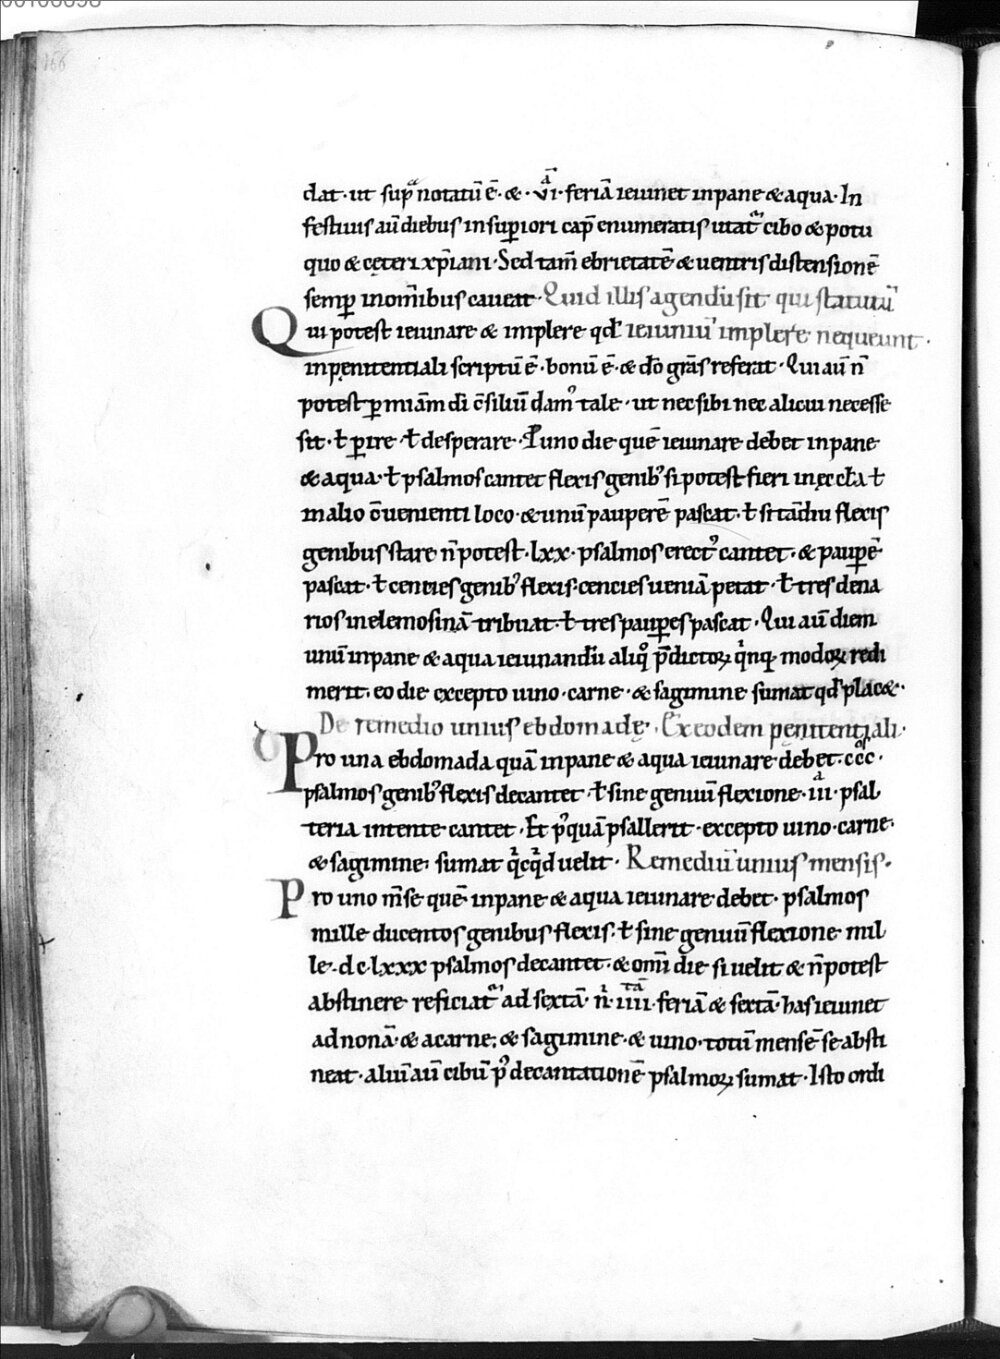 166
dat · ut sup͛ notatū ē · & · vi ᵃ̄ · feriā ieiunet in pane & aqua · In
festiuis aū diebus in supiori cap̄ enumeratis utat᷑ cibo & potu
quo & cęteri xp̄iani · Sed tam̄ ebrietatē & uentris distensionē
semꝑ in om̄ibus caueat · Quid illis agendū sit qui statutū
Qui potest ieiunare & implere qd̄ ieiuniū implere nequeunt ·
in pęnitentiali scriptū ē · bonū ē · & dō grās referat · Qui aū n̄
potest ꝑ miām dī c̄siliū dam᷒ tale · ut nec sibi nec alicui necesse
sit · ł ꝑire · ł desperare · P uno die quē ieiunare debet in pane
& aqua · ł psalmos cantet flexis genib᷒ si potest fieri in ęccła ł
in alio c̄uenienti loco · & unū pauperē pascat · ł si tādiu flexis
genibus stare n̄ potest · lxx · psalmos erect᷒ cantet · & pauꝑē
pascat · ł centies genib᷒ flexis · centies ueniā petat · ł tres dena
rios in elemosinā tribuat · ł tres pauꝑes pascat · Qui aū diem
unū in pane & aqua ieiunandū aliq̊ p̄dictoꝝ q̍nq modoꝝ redi
merit · eo die excepto uino · carne · & sagimine sumat qd̄ plac& ·
De remedio unius ebdomadę · Ex eodem pęnitentiali ·
Pro una ebdomada quā in pane & aqua ieiunare debet · ccc ᵒˢ ·
psalmos genib᷒ flexis decantet · ł sine genuū flexione · iii ᵃ · psal
teria intente cantet · Et p᷒quā psallerit · excepto uino · carne ·
& sagimine · sumat q̍cq̍d uelit · Remediū unius mensis ·
Pro uno m̄se quē in pane & aqua ieiunare debet · psalmos
mille ducentos genibus flexis · ł sine genuū flexione mil
le · dclxxx psalmos decantet · & om̄i die si uelit & n̄ potest
abstinere reficiat᷑ ad sextā n̍ · iiii ᵗᵃ̄ · feriā & sextā · has ieiunet
ad nonā · & a carne · & sagimine · & uino · totū mensē se absti
neat · aliū aū cibū p᷒ decantationē psalmoꝝ sumat · Isto ordi